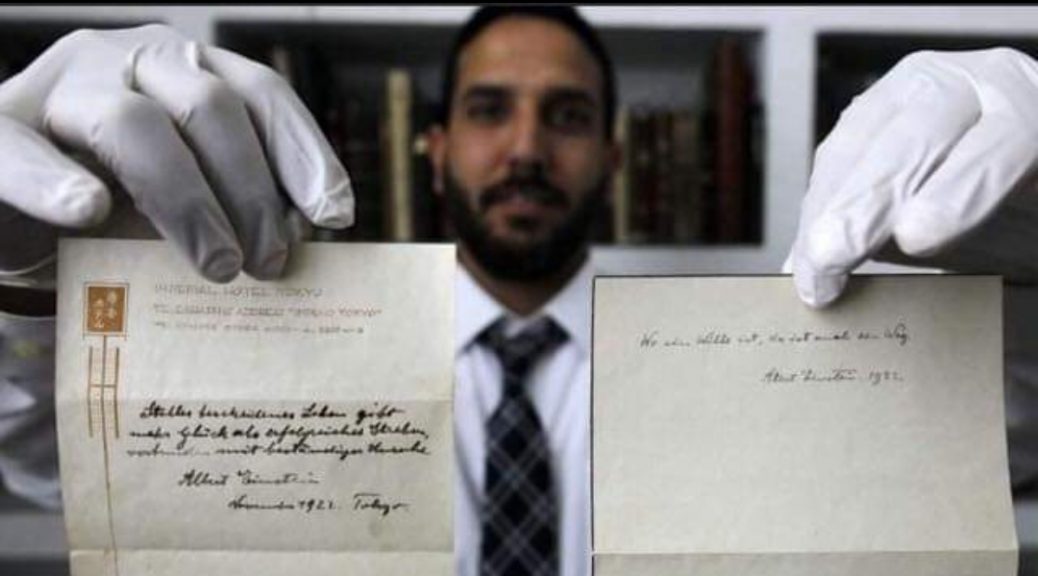 IMPERIAL HOTEL TOKYO
Stilles bescheidenes Leben gibt
mehr Glück als erfolgreiches Streben,
verbunden mit beständiger Unruhe.
Albert Einstein
November 1922. Tokyo.
Wo ein Wille ist, da ist auch ein Weg.
Albert Einstein. 1922.